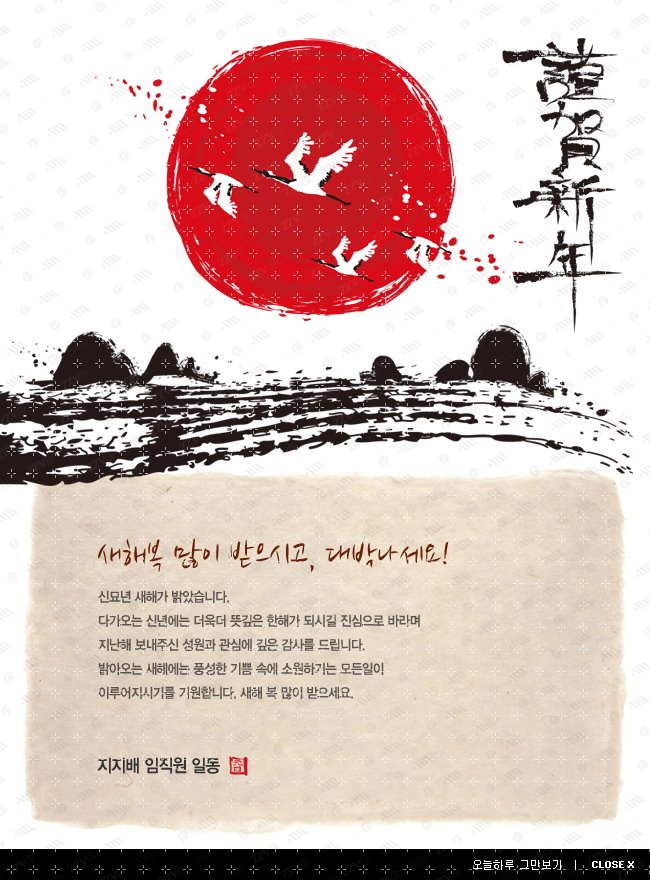 謹賀新年
새해복 많이 받으시고, 대박나세요!
신묘년 새해가 밝았습니다.
다가오는 신년에는 더욱더 뜻깊은 한해가 되시길 진심으로 바라며
지난해 보내주신 성원과 관심에 깊은 감사를 드립니다.
밝아오는 새해에는 풍성한 기쁨 속에 소원하기는 모든일이
이루어지시기를 기원합니다. 새해 복 많이 받으세요.
지지배 임직원 일동
오늘하루 그만보기 | CLOSE X